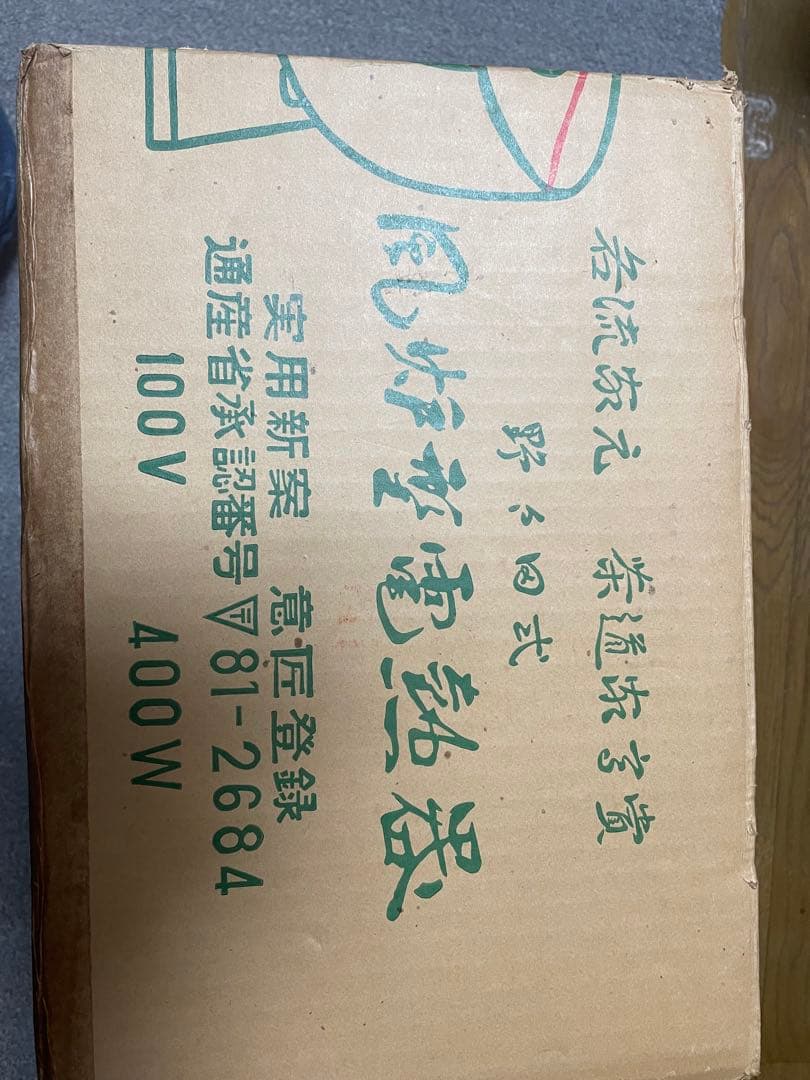 各流家元 茶道家
野々田式
風炉型電熱器
実用新案 意匠登録
通産省承認番号 81-2684
100V 400W